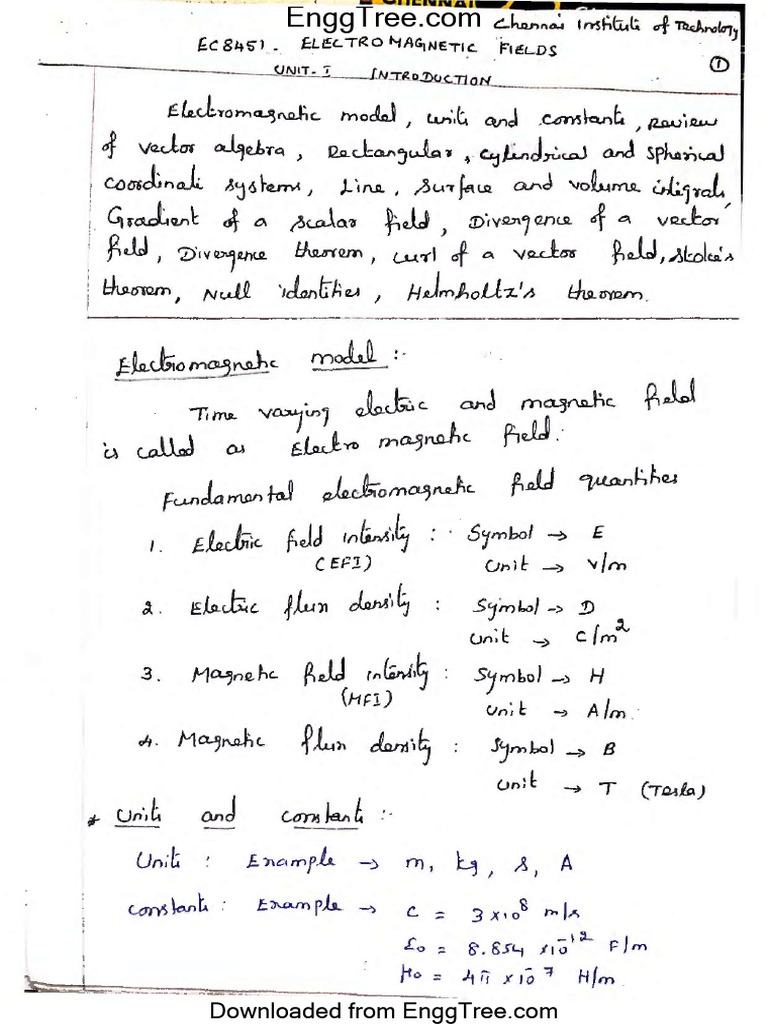 CHENNAI
EnggTree.com Chennai Institute of Technology
EC8451 - ELECTROMAGNETIC FIELDS
①
UNIT-I INTRODUCTION
Electromagnetic model, units and constants, review
of vector algebra, Rectangular, cylindrical and spherical
coordinate systems, Line, surface and volume integrals,
Gradient of a scalar field, Divergence of a vector
field, Divergence theorem, curl of a vector field, stoke's
theorem, Null identities, Helmholtz's theorem.
Electromagnetic model :-
Time varying electric and magnetic field
is called as Electro magnetic field.
Fundamental electromagnetic field quantities
1. Electric field intensity : Symbol → E
(EFI) Unit → V/m
2. Electric flux density : Symbol → D
Unit → C/m²
3. Magnetic field intensity : Symbol → H
(MFI) Unit → A/m.
4. Magnetic flux density : Symbol → B
Unit → T (Tesla)
* Units and constants :-
Units : Example → m, kg, s, A
constants : Example → c = 3×10⁸ m/s
ε₀ = 8.854 ×10⁻¹² F/m
μ₀ = 4π ×10⁻⁷ H/m
Downloaded from EnggTree.com